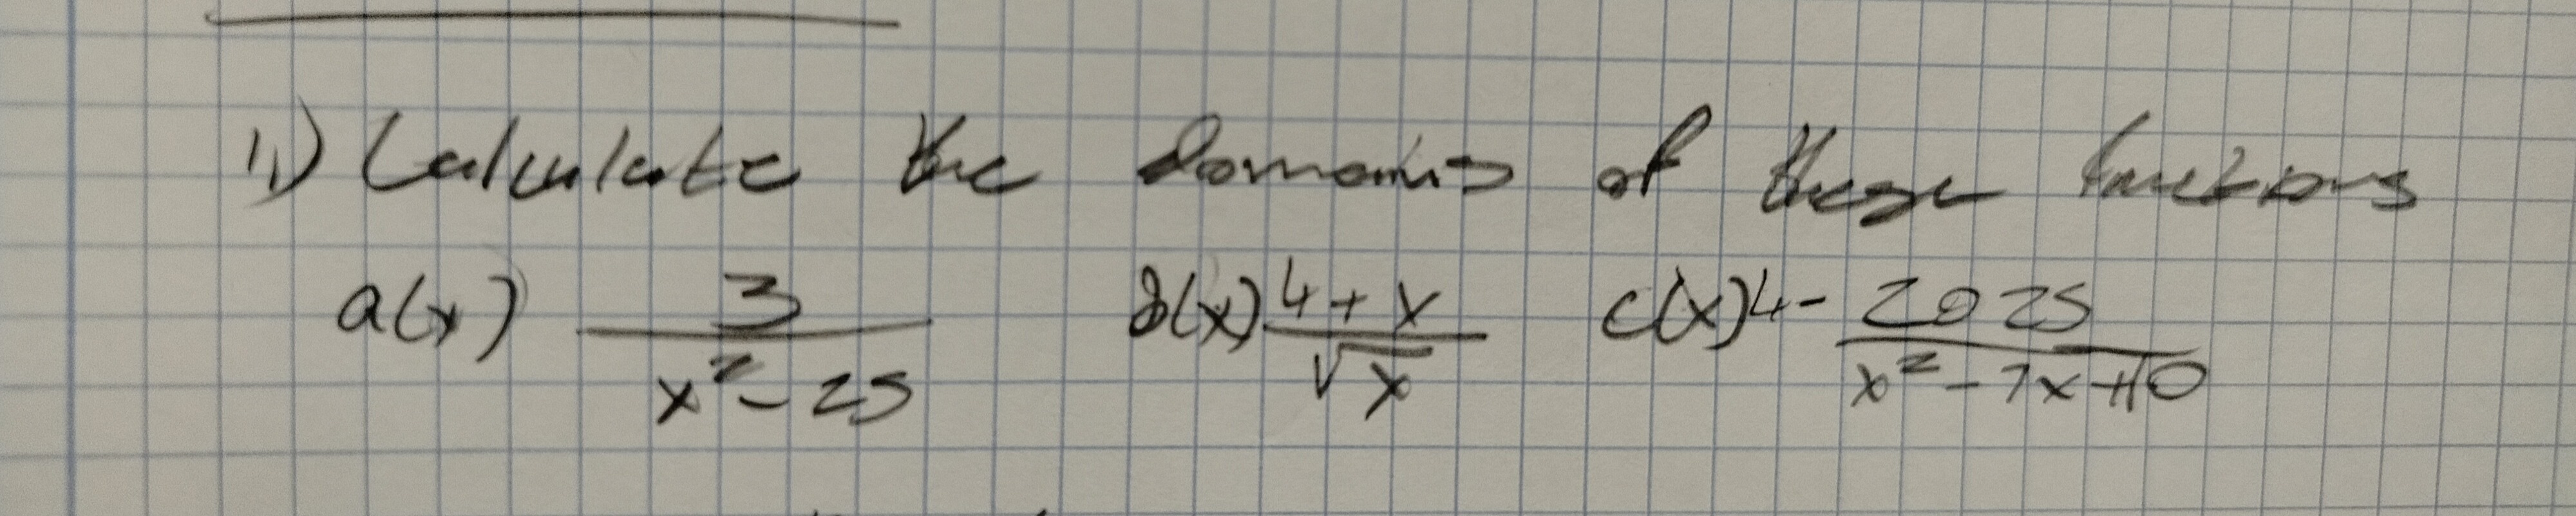 1,) Calculate the domains of these functions
a(x) 3/(x²-25) b(x) (4+x)/√x c(x) 4- 2025/(x²-7x+10)